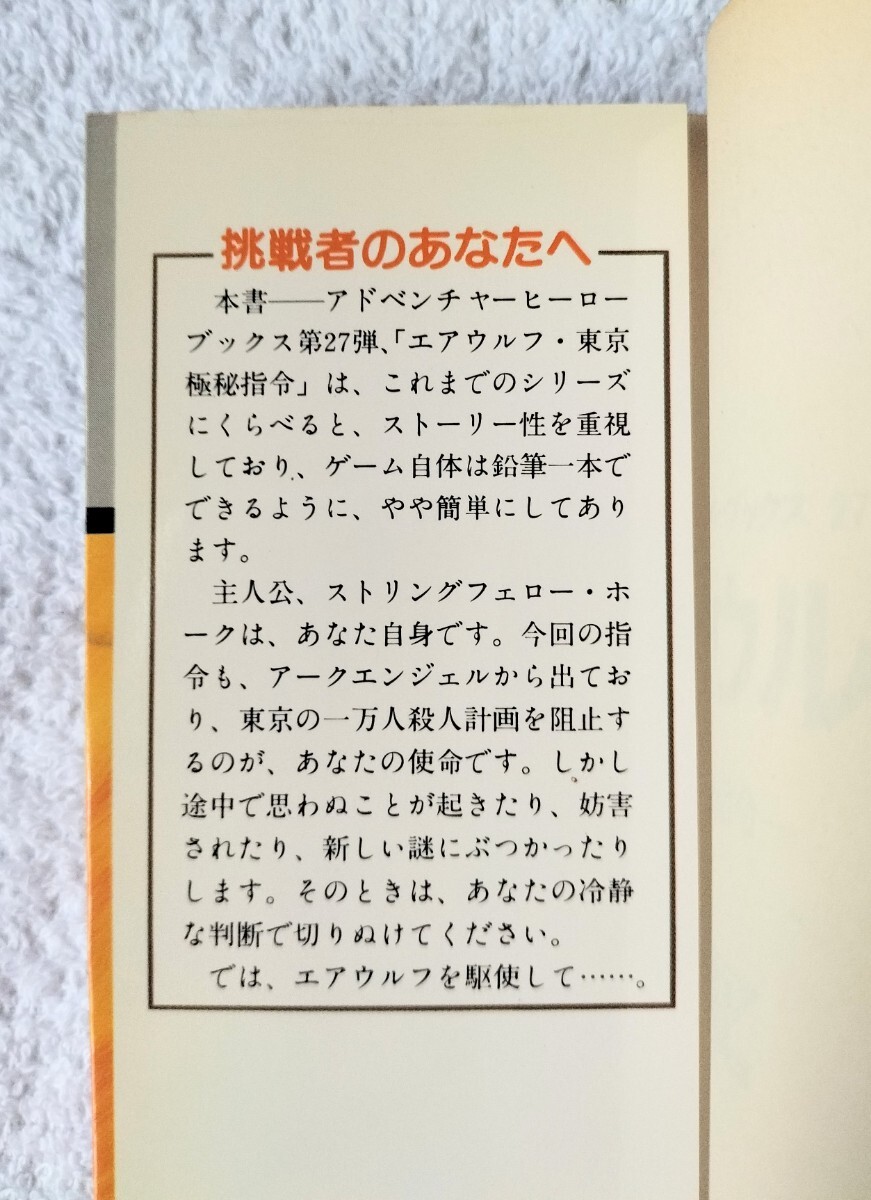 挑戦者のあなたへ
本書――アドベンチャーヒーロー
ブックス第27弾、「エアウルフ・東京
極秘指令」は、これまでのシリーズ
にくらべると、ストーリー性を重視
しており、ゲーム自体は鉛筆一本で
できるように、やや簡単にしてあり
ます。
主人公、ストリングフェロー・ホ
ークは、あなた自身です。今回の指
令も、アークエンジェルから出てお
り、東京の一万人殺人計画を阻止す
るのが、あなたの使命です。しかし
途中で思わぬことが起きたり、妨害
されたり、新しい謎にぶつかったり
します。そのときは、あなたの冷静
な判断で切りぬけてください。
では、エアウルフを駆使して……。